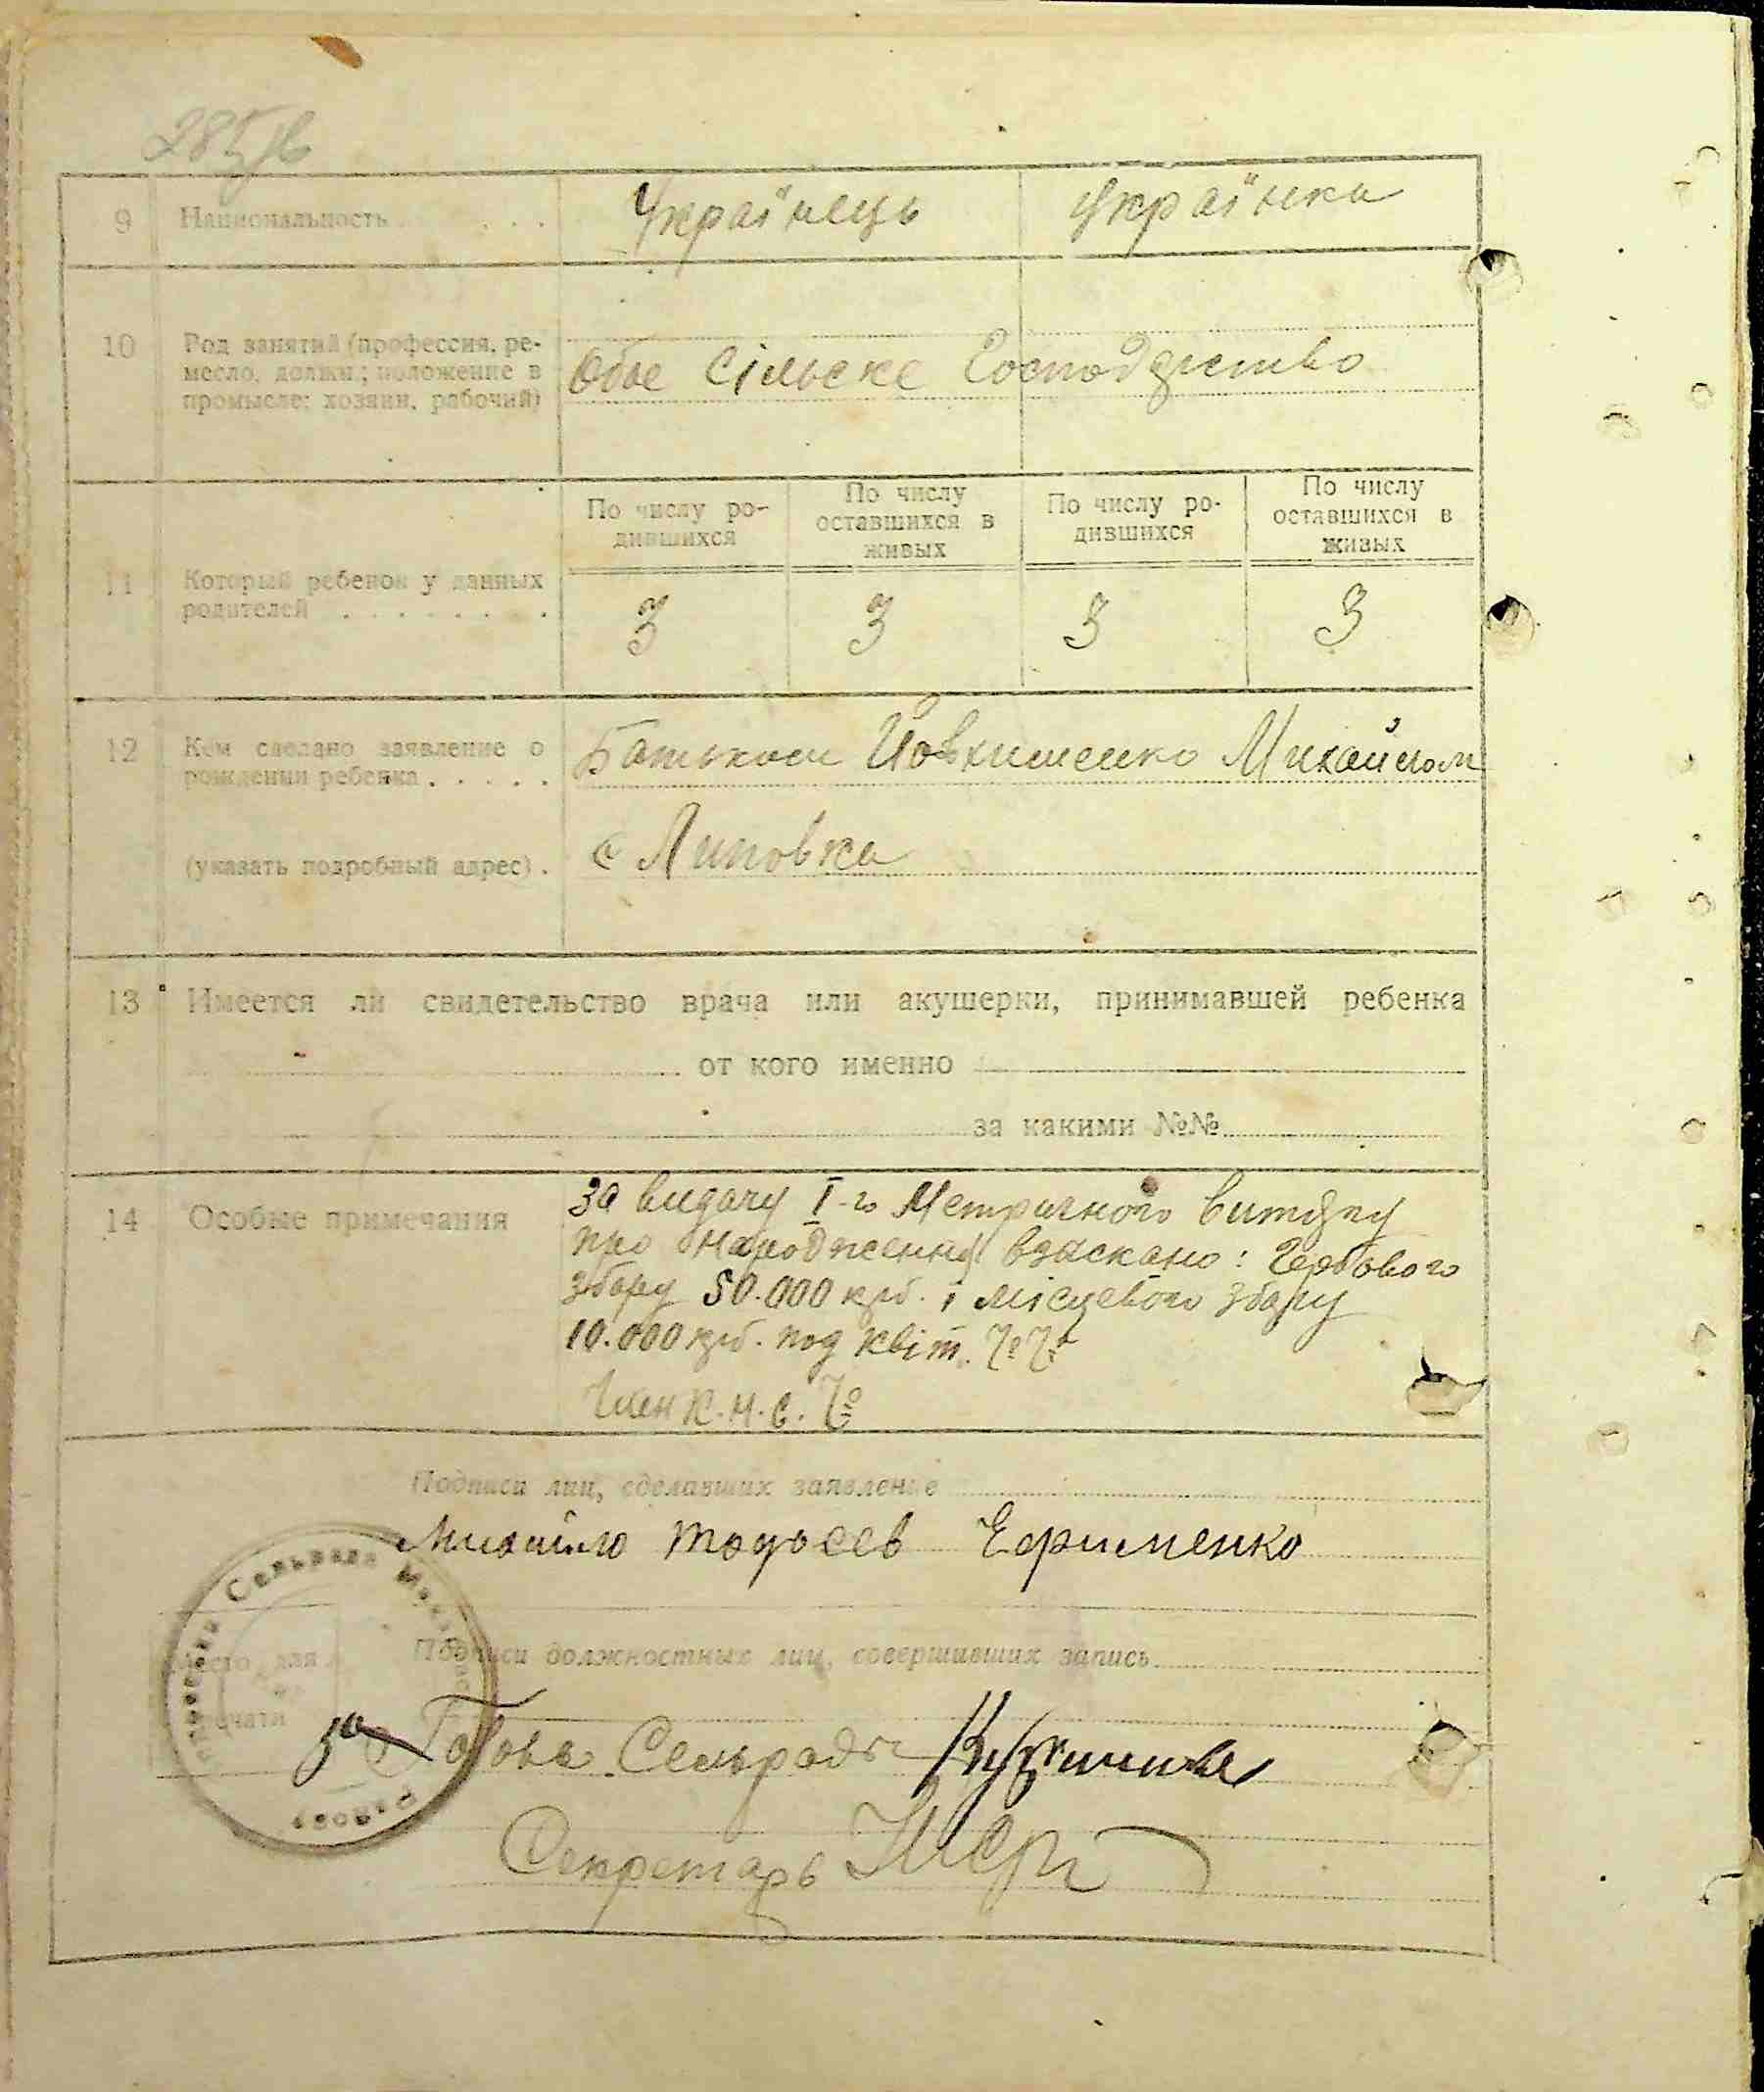 9 Национальность . . . . Українець Українка
10 Род занятий (профессия, ре-
месло, должн.; положение в
промысле: хозяин, рабочий)
Обое сільске Господарство
По числу ро-
дившихся
По числу
оставшихся в
живых
По числу ро-
дившихся
По числу
оставшихся в
живых
11 Который ребенок у данных
родителей . . . . . . .
3 3 3 3
12 Кем сделано заявление о
рождении ребенка . . . . .
Батьком Йовхименко Михайлом
(указать подробный адрес) .
с Липовка
13 Имеется ли свидетельство врача или акушерки, принимавшей ребенка
от кого именно
за какими №№
14 Особые примечания
За видачу І-го Метричного витягу
про народження взыскано: Гербового
збору 50.000 крб. і місцевого збору
10.000 крб. под квіт. №№
Член К.Н.С. №
Подписи лиц, сделавших заявление
Михайло Тодосев Ефименко
Место для
печати
Подписи должностных лиц, совершивших запись
за Голова Сельради
Секретарь